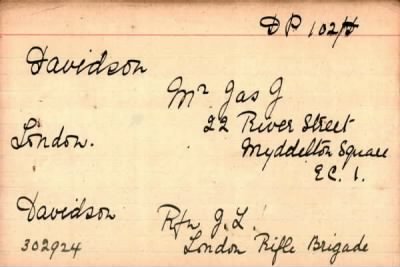 DP 102/H
Davidson
Mr Jas G
London.
22 River Street
Myddelton Square
E.C. 1.
Davidson
Rfn J. L.
302924
London Rifle Brigade